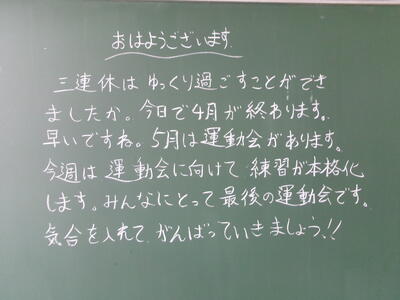 おはようございます.
三連休はゆっくり過ごすことができ
ましたか。今日で4月が終わります。
早いですね。5月は運動会があります。
今週は運動会に向けて練習が本格化
します。みんなにとって最後の運動会です。
気合を入れて、がんばっていきましょう!!